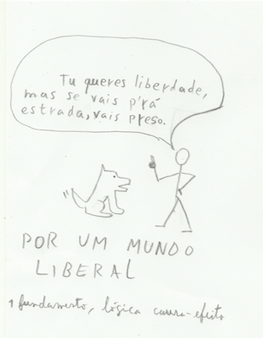 Tu queres liberdade,
mas se vais p'rá
estrada, vais preso.
POR UM MUNDO
LIBERAL
1 fundamento, lógica causa-efeito